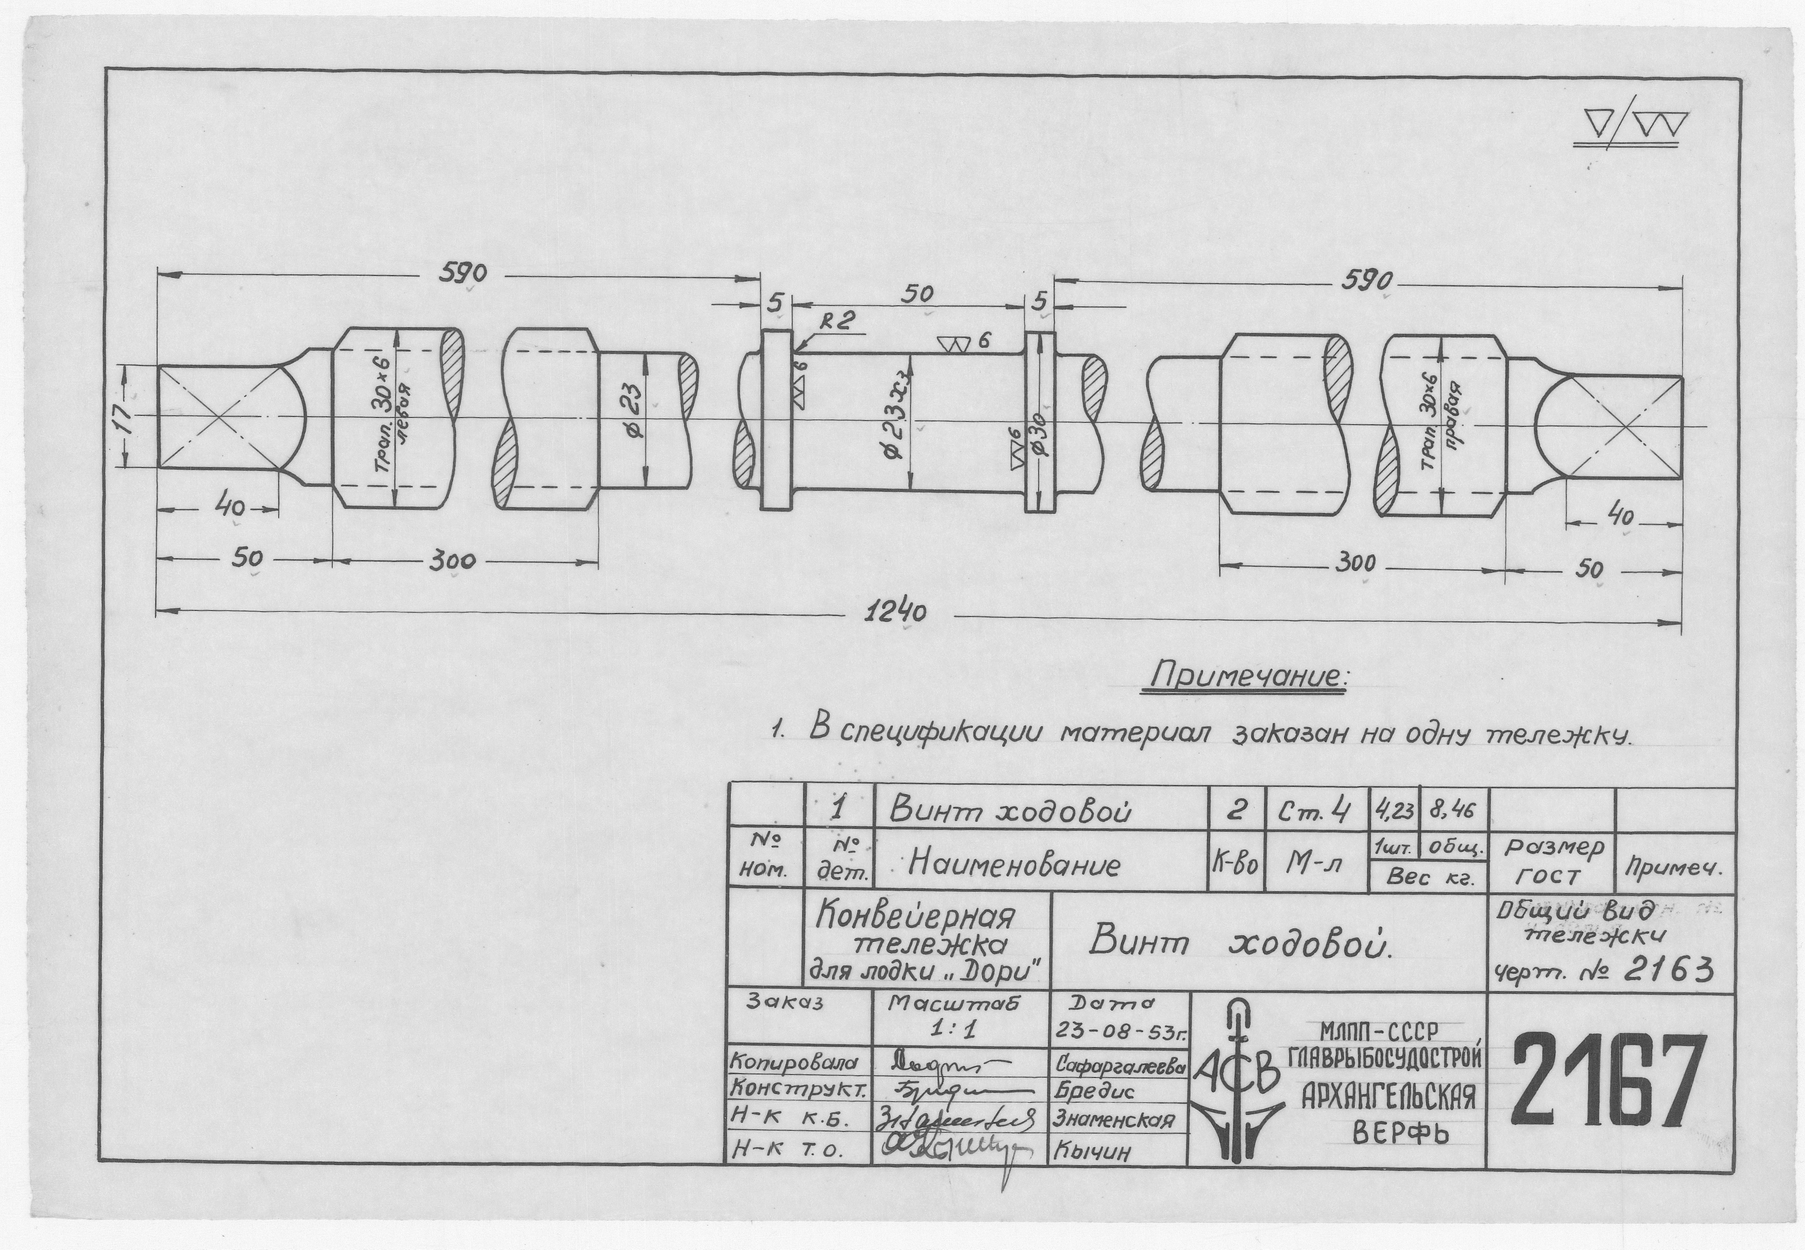 590
590
5
50
5
R2
6
6
6
17
трап. 30×6
левая
⌀23
⌀23х3
⌀30
трап. 30×6
правая
40
40
50
300
300
50
1240
Примечание:
1. В спецификации материал заказан на одну тележку.
1 Винт ходовой 2 Ст.4 4,23 8,46
№ ном.
№ дет.
Наименование
К-во
М-л
1шт. общ.
Вес кг.
размер
гост
Примеч.
Конвейерная
тележка
для лодки „Дори"
Винт ходовой.
Общий вид
тележки
черт. № 2163
Заказ
Масштаб
1:1
Дата
23-08-53г.
Копировала Сафаргалеева
Конструкт. Бредис
Н-к к.б. Знаменская
Н-к т.о. Кычин
АСВ
МЛПП-СССР
ГЛАВРЫБОСУДОСТРОЙ
АРХАНГЕЛЬСКАЯ
ВЕРФЬ
2167